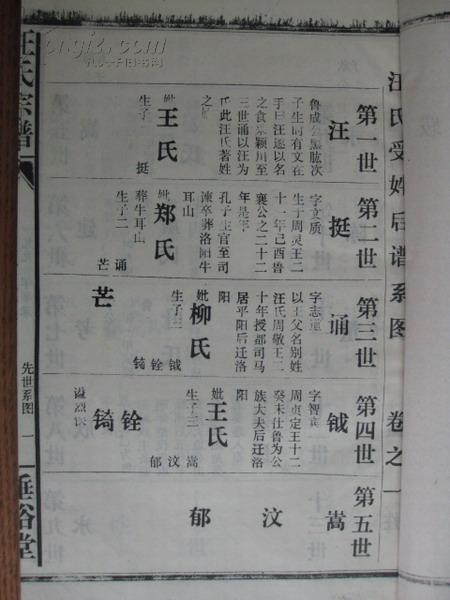 汪氏受姓后谱系图 卷之一
第一世
汪
鲁成公黑肱次
子生而有文在
手曰汪遂以名
之食采颍川至
三世诵以汪为
氏此汪氏著姓
之始
妣王氏
生子 挺
第二世
挺
字文质
生于周灵王二
十一年己酉鲁
襄公之二十二
年是年
孔子生官至司
谏卒葬洛阳牛
耳山
妣郑氏
葬牛耳山
生子二
诵
芒
第三世
诵
字志重
以王父名别姓
汪氏周敬王二
十年授都司马
居平阳后迁洛
阳
妣柳氏
生子三
钺 铨 锜
芒
第四世
钺
字智高
周贞定王十二
癸未仕鲁为公
族大夫后迁洛
阳
妣王氏
生子三
嵩 汶 郁
铨
锜
谥烈侯
第五世
嵩
汶
郁
汪氏宗谱
先世系图 一
垂裕堂